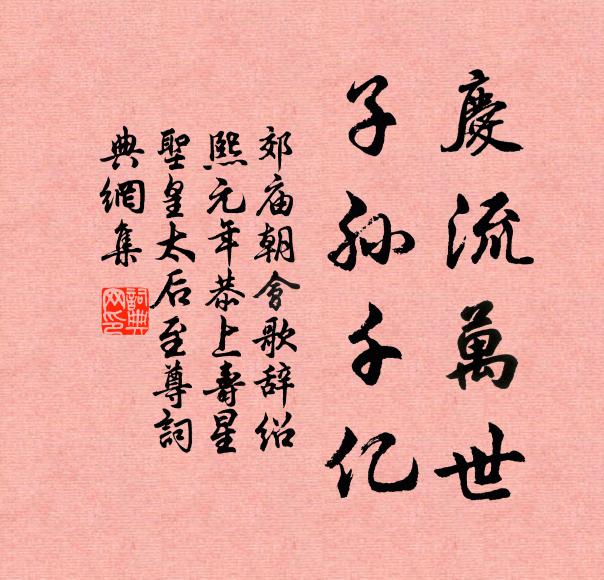 慶流萬世
子孫千亿
郊庙朝會歌辞绍
熙元年恭上壽星
聖皇太后至尊詞
典網集
詞典
网印